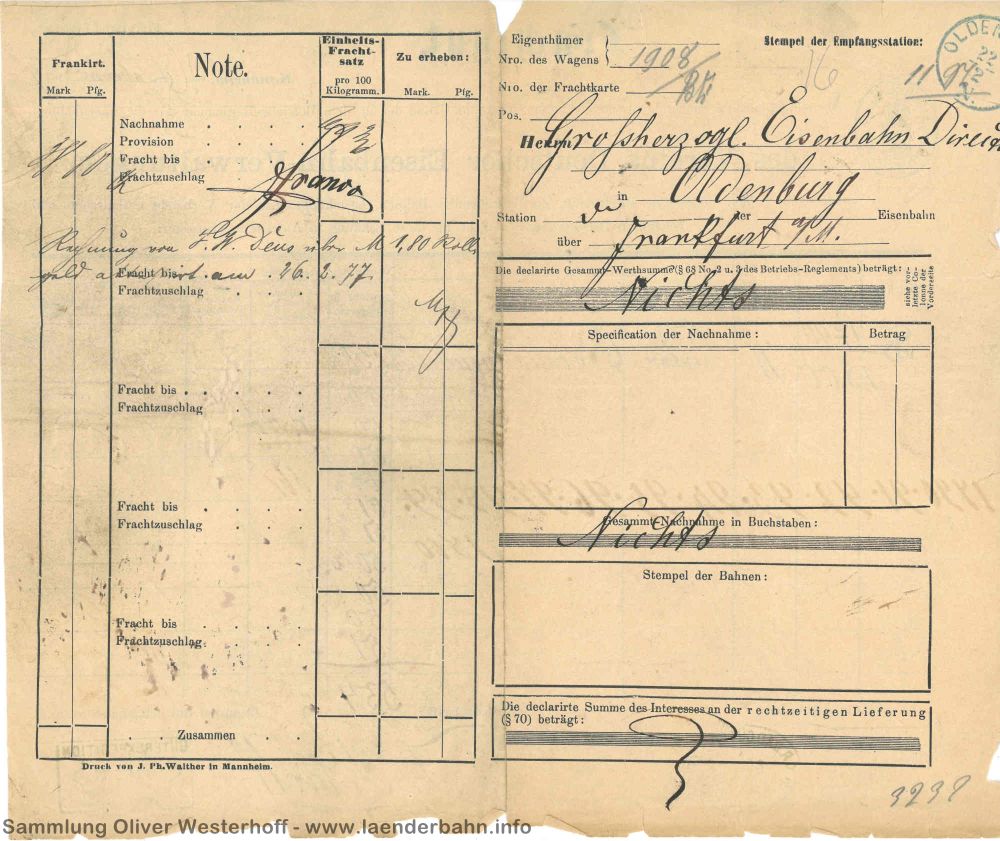 Frankirt.
Mark Pfg.
Note.
Einheits-
Fracht-
satz
pro 100
Kilogramm.
Zu erheben:
Mark. Pfg.
Nachnahme
Provision
Fracht bis
Frachtzuschlag
franco
Rechnung von F. W. Deus über M 1,80 Roll
geld am 26. 2. 77.
Fracht bis
Frachtzuschlag
Fracht bis
Frachtzuschlag
Fracht bis
Frachtzuschlag
Fracht bis
Frachtzuschlag
Zusammen
Druck von J. Ph. Walther in Mannheim.
Eigenthümer
Nro. des Wagens 1908
Nro. der Frachtkarte
Pos.
Stempel der Empfangsstation:
OLDEN
Herrn Grossherzogl. Eisenbahn Direct
in Oldenburg
Station der Eisenbahn
über Frankfurt a/M.
Die declarirte Gesammt-Werthsumme (§ 68 No. 2 u. 3 des Betriebs-Reglements) beträgt:
siehe vor-
letzte Co-
lonne der
Vorderseite
Nichts
Specification der Nachnahme:
Betrag
Gesammt-Nachnahme in Buchstaben:
Nichts
Stempel der Bahnen:
Die declarirte Summe des Interesses an der rechtzeitigen Lieferung
(§ 70) beträgt:
3238
Sammlung Oliver Westerhoff - www.laenderbahn.info